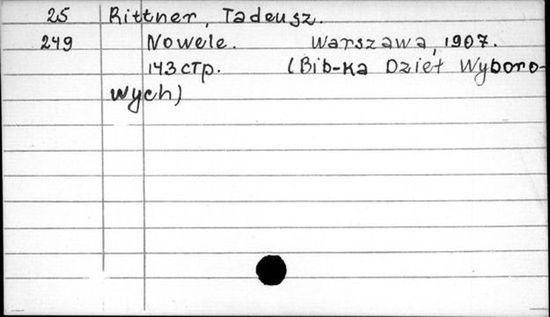 25 Rittner, Tadeusz.
249 Nowele. Warszawa, 1907.
143 стр. (Bib-ka Dzieł Wyboro-
wych)